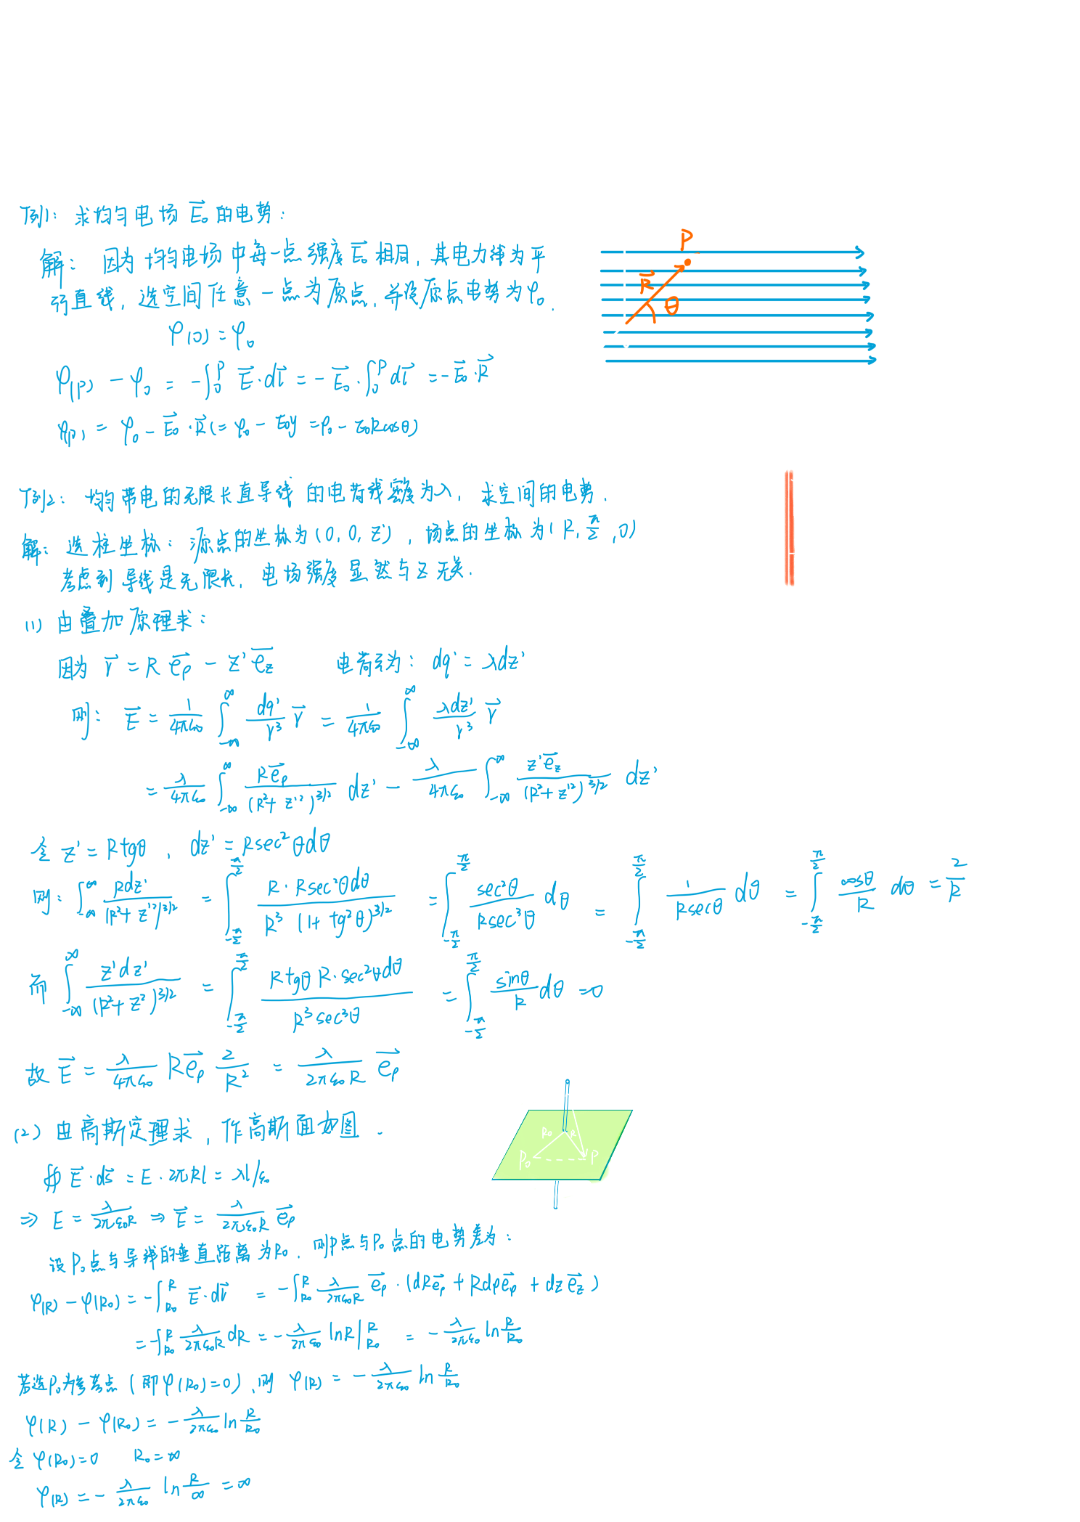 例1: 求均匀电场 $\vec{E_0}$ 的电势:
解: 因为均匀电场中每一点强度 $\vec{E_0}$ 相同, 其电力线为平
行直线, 选空间任意一点为原点, 并设原点电势为 $\varphi_0$.
$\varphi(0) = \varphi_0$
$\varphi(P) - \varphi_0 = -\int_0^P \vec{E} \cdot d\vec{l} = -\vec{E_0} \cdot \int_0^P d\vec{l} = -\vec{E_0} \cdot \vec{R}$
$\varphi(P) = \varphi_0 - \vec{E_0} \cdot \vec{R} (= \varphi_0 - E_0 y = \varphi_0 - E_0 R\cos\theta)$
P
$\vec{R}$
θ
例2: 均匀带电的无限长直导线的电荷线密度为λ, 求空间的电势.
解: 选柱坐标: 源点的坐标为 (0, 0, z'), 场点的坐标为 (R, $\frac{\pi}{2}$, 0)
考虑到导线是无限长, 电场强度显然与 z 无关.
(1) 由叠加原理求:
因为 $\vec{r} = R\vec{e_\rho} - z'\vec{e_z}$ 电荷元为: $dq' = \lambda dz'$
则: $\vec{E} = \frac{1}{4\pi\varepsilon_0} \int_{-\infty}^{\infty} \frac{dq'}{r^3} \vec{r} = \frac{1}{4\pi\varepsilon_0} \int_{-\infty}^{\infty} \frac{\lambda dz'}{r^3} \vec{r}$
$= \frac{\lambda}{4\pi\varepsilon_0} \int_{-\infty}^{\infty} \frac{R\vec{e_\rho}}{(R^2+z'^2)^{3/2}} dz' - \frac{\lambda}{4\pi\varepsilon_0} \int_{-\infty}^{\infty} \frac{z'\vec{e_z}}{(R^2+z'^2)^{3/2}} dz'$
令 $z' = R tg\theta$, $dz' = R\sec^2\theta d\theta$
则: $\int_{-\infty}^{\infty} \frac{Rdz'}{(R^2+z'^2)^{3/2}} = \int_{-\frac{\pi}{2}}^{\frac{\pi}{2}} \frac{R \cdot R\sec^2\theta d\theta}{R^3(1+tg^2\theta)^{3/2}} = \int_{-\frac{\pi}{2}}^{\frac{\pi}{2}} \frac{\sec^2\theta}{R\sec^3\theta} d\theta = \int_{-\frac{\pi}{2}}^{\frac{\pi}{2}} \frac{1}{R\sec\theta} d\theta = \int_{-\frac{\pi}{2}}^{\frac{\pi}{2}} \frac{\cos\theta}{R} d\theta = \frac{2}{R}$
而 $\int_{-\infty}^{\infty} \frac{z'dz'}{(R^2+z^2)^{3/2}} = \int_{-\frac{\pi}{2}}^{\frac{\pi}{2}} \frac{Rtg\theta R \cdot \sec^2\theta d\theta}{R^3\sec^3\theta} = \int_{-\frac{\pi}{2}}^{\frac{\pi}{2}} \frac{\sin\theta}{R} d\theta = 0$
故 $\vec{E} = \frac{\lambda}{4\pi\varepsilon_0} R\vec{e_\rho} \frac{2}{R^2} = \frac{\lambda}{2\pi\varepsilon_0 R} \vec{e_\rho}$
(2) 由高斯定理求, 作高斯面如图.
R₀
R
P₀
P
$\oiint \vec{E} \cdot d\vec{s} = E \cdot 2\pi Rl = \lambda l/\varepsilon_0$
$\Rightarrow E = \frac{\lambda}{2\pi\varepsilon_0 R} \Rightarrow \vec{E} = \frac{\lambda}{2\pi\varepsilon_0 R} \vec{e_\rho}$
设 P₀点与导线的垂直距离为R₀, 则P点与P₀点的电势差为:
$\varphi(R) - \varphi(R_0) = -\int_{R_0}^{R} \vec{E} \cdot d\vec{l} = -\int_{R_0}^{R} \frac{\lambda}{2\pi\varepsilon_0 R} \vec{e_\rho} \cdot (dR\vec{e_\rho} + Rd\varphi\vec{e_\varphi} + dz\vec{e_z})$
$= -\int_{R_0}^{R} \frac{\lambda}{2\pi\varepsilon_0 R} dR = -\frac{\lambda}{2\pi\varepsilon_0} \ln R |_{R_0}^{R} = -\frac{\lambda}{2\pi\varepsilon_0} \ln\frac{R}{R_0}$
若选P₀为参考点 (即 $\varphi(R_0)=0$), 则 $\varphi(R) = -\frac{\lambda}{2\pi\varepsilon_0} \ln\frac{R}{R_0}$
$\varphi(R) - \varphi(R_0) = -\frac{\lambda}{2\pi\varepsilon_0} \ln\frac{R}{R_0}$
令 $\varphi(R_0)=0$ $R_0=\infty$
$\varphi(R) = -\frac{\lambda}{2\pi\varepsilon_0} \ln\frac{R}{\infty} = \infty$